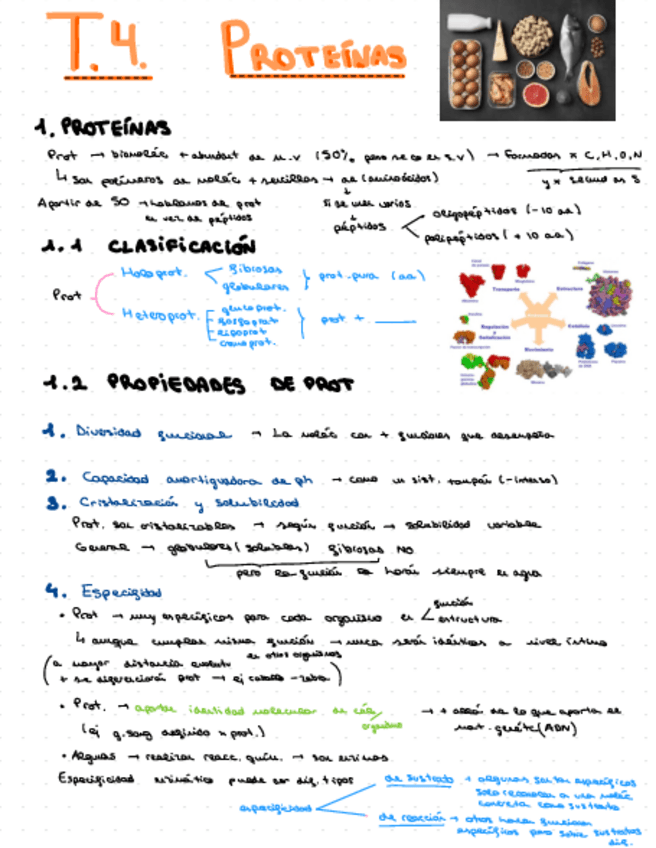 T.4. PROTEÍNAS
1. PROTEÍNAS
Prot → biomoléc + abundant de m.v (50% peso seco es s.v) → Formadas x C, H, O, N
↳ son polímeros de moléc + sencillas → aa (aminoácidos)
y x
A partir de 50 → hablamos de prot
en vez de péptidos
si se unen varios
péptidos
oligopéptidos (-10 aa)
polipéptidos (+ 10 aa)
1.1 CLASIFICACIÓN
Prot
Holoprot.
fibrosas
globulares
prot. pura (aa)
Heteroprot.
glucoprot.
fosfoprot
lipoprot
cromoprot.
prot +
Transporte
Estructura
Regulación
y
Señalización
Catálisis
Movimiento
1.2 PROPIEDADES DE PROT
1. Diversidad funcional → La moléc con + funciones que desempeña
2. Capacidad amortiguadora de ph → como un sist. tampón (-intenso)
3. Cristalización y solubilidad
Prot. son cristalizables → según función → solubilidad variable
General → globulares (solubles) fibrosas NO
pero la función la harán siempre en agua
4. Especifidad
• Prot → muy específicas para cada organismo en
función
estructura
↳ aunque cumplan misma función → nunca serán idénticas a nivel íntimo
en otros organismos
(a mayor distancia evolutiv
+ se diferenciarán prot → ej caballo - )
• Prot. → aportar identidad molecular de cél/
organismo
→ + allá de lo que aporta el
mat. genétc (ADN)
(ej g. sang definido x prot.)
• Algunas → realizar reacc. quím. → son enzimas
Especificidad enzimática puede ser dif. tipos
especificidad
de sustrato → algunas son tan específicas
solo reconocen a una moléc
concreta como sustrato
de reacción → otras hacen funciones
específicas pero sobre sustratos
dif.